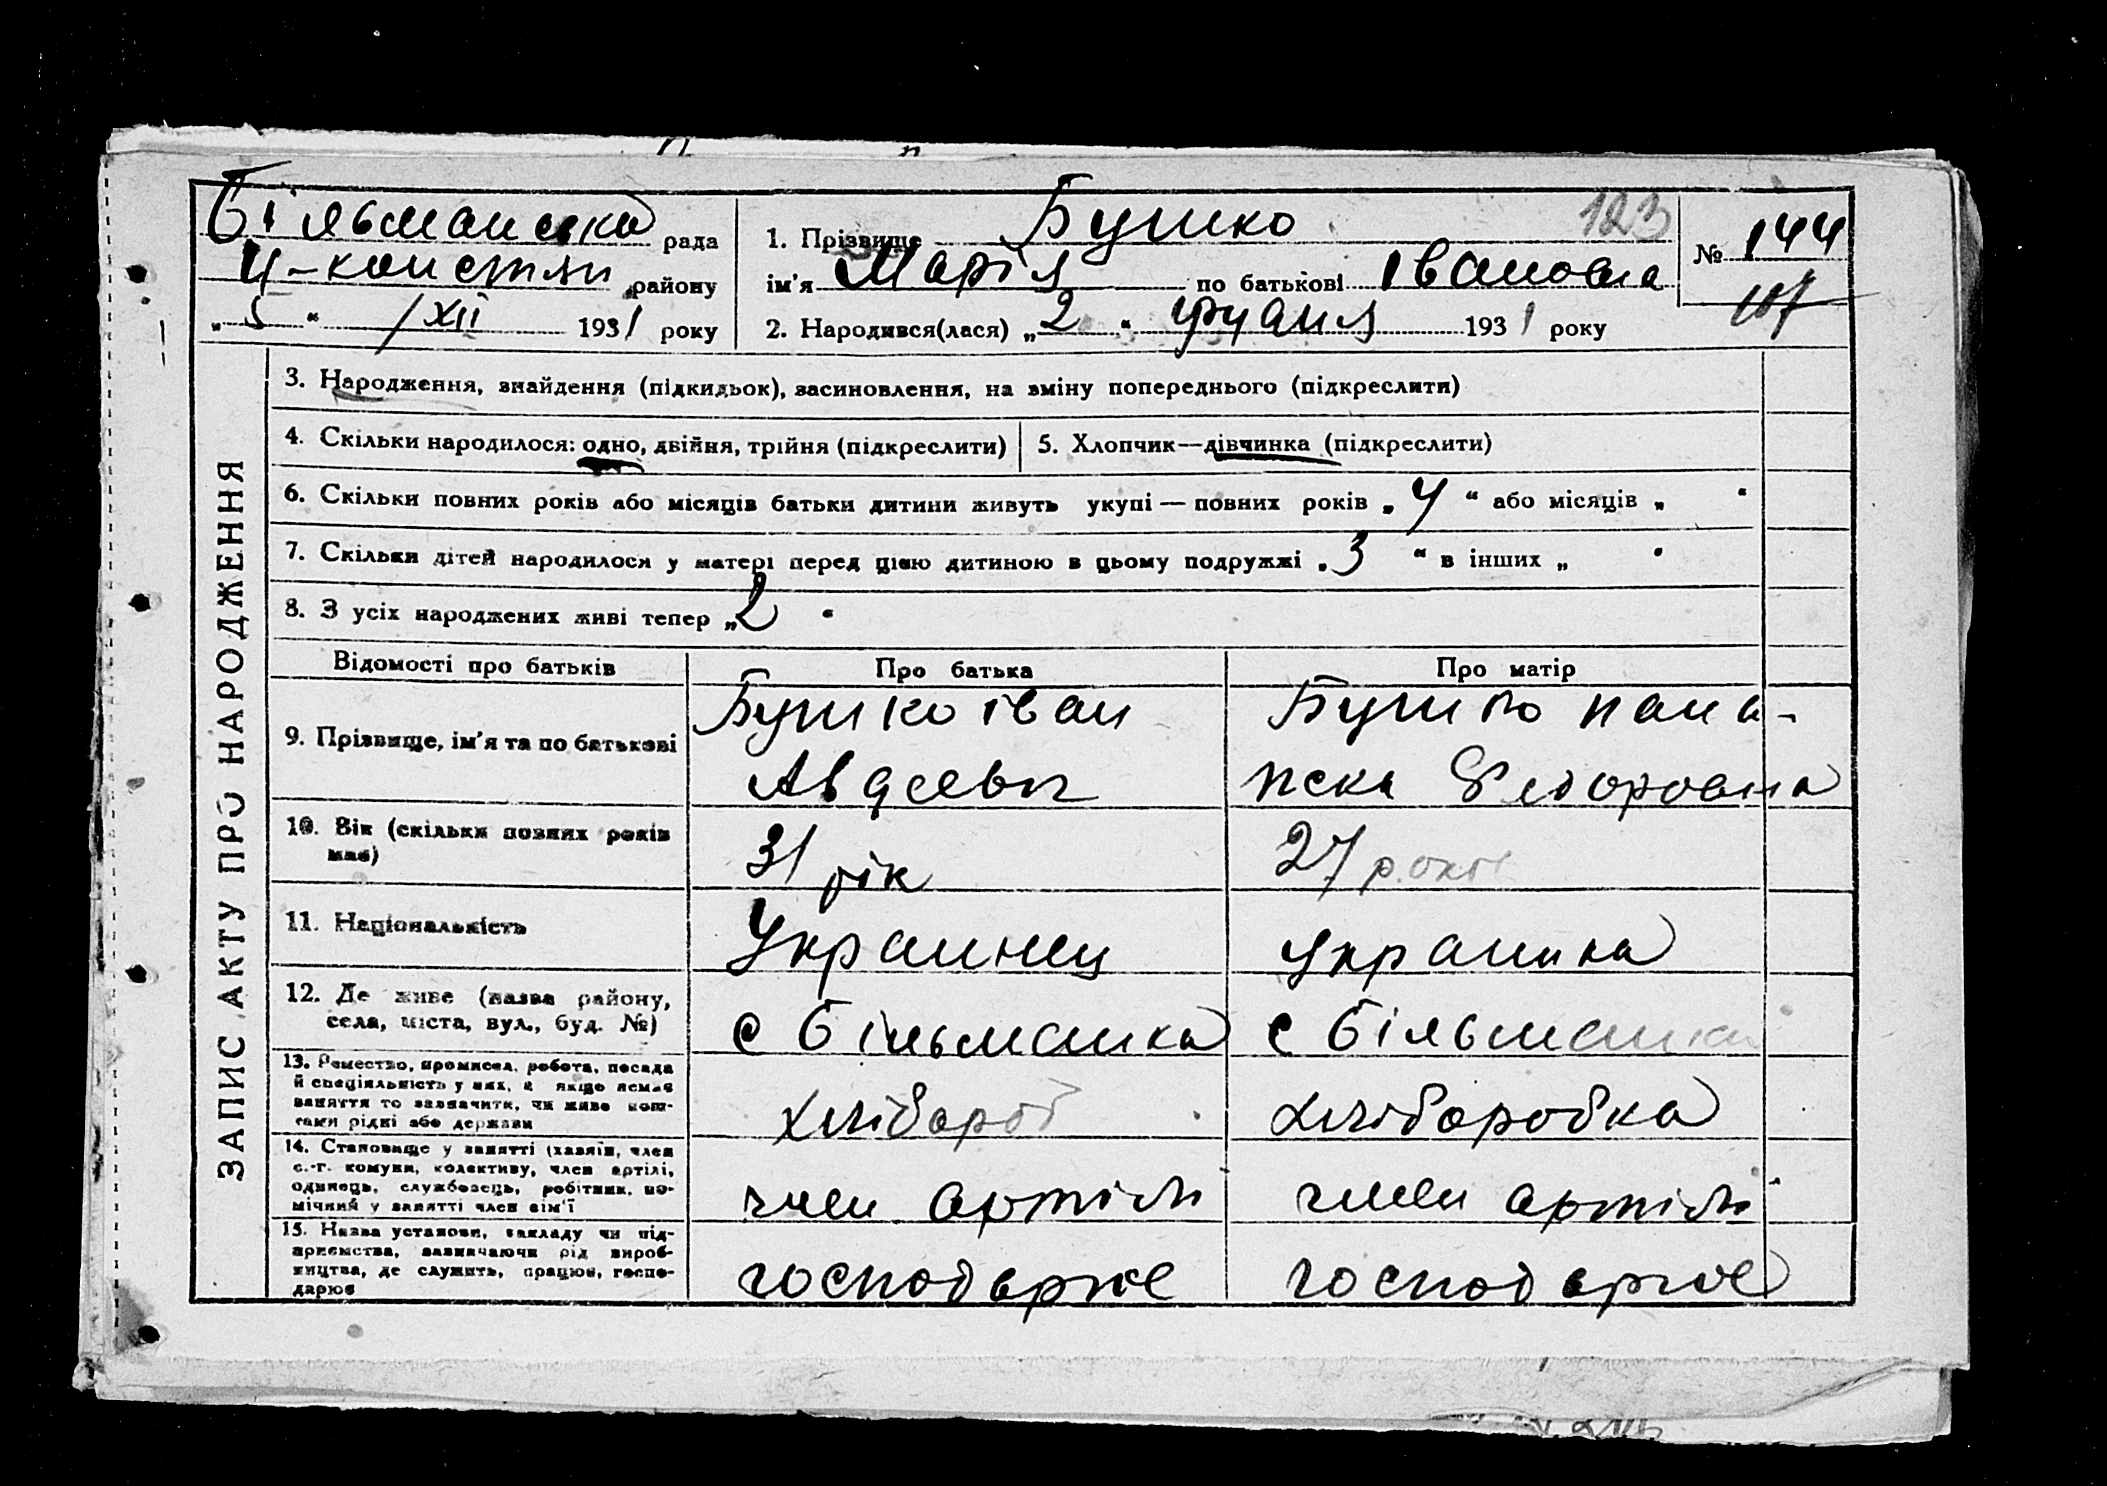 Більманська рада
Ц-констян району
„5“ /XII 1931 року
123
1. Прізвище Бушко
ім'я Марія по батькові Івановна
2. Народився(лася) „2“ грудня 1931 року
№ 144
107
ЗАПИС АКТУ ПРО НАРОДЖЕННЯ
3. Народження, знайдення (підкидьок), засиновлення, на зміну попереднього (підкреслити)
4. Скільки народилося: одно, двійня, трійня (підкреслити)
5. Хлопчик—дівчинка (підкреслити)
6. Скільки повних років або місяців батьки дитини живуть укупі — повних років „4“ або місяців „ “
7. Скільки дітей народилося у матері перед цією дитиною в цьому подружжі „3“ в інших „ “
8. З усіх народжених живі тепер „2“
Відомості про батьків
Про батька
Про матір
9. Прізвище, ім'я та по батькові
Бушко іван
Авдеевич
Бушко пана-
Федоровна
10. Вік (скільки повних років
має)
31 рік
27 років
11. Національність
Украинец
Украинка
12. Де живе (назва району,
села, міста, вул., буд. №)
с Більманка
с Більманка
13. Ремество, промисел, робота, посада
й спеціяльність у них, а якщо немає
заняття то зазначити, чи живе кош-
тами рідні або держави
хлібороб
хліборобка
14. Становище у занятті (хазяїн, член
с.-г. комуни, колективу, член артілі,
одинець, службовець, робітник, по-
мічний у занятті член сім'ї
член артілі
член артілі
15. Назва установи, закладу чи під-
приємства, зазначаючи рід вироб-
ництва, де служить, працює, госпо-
дарює
господарює
господарює